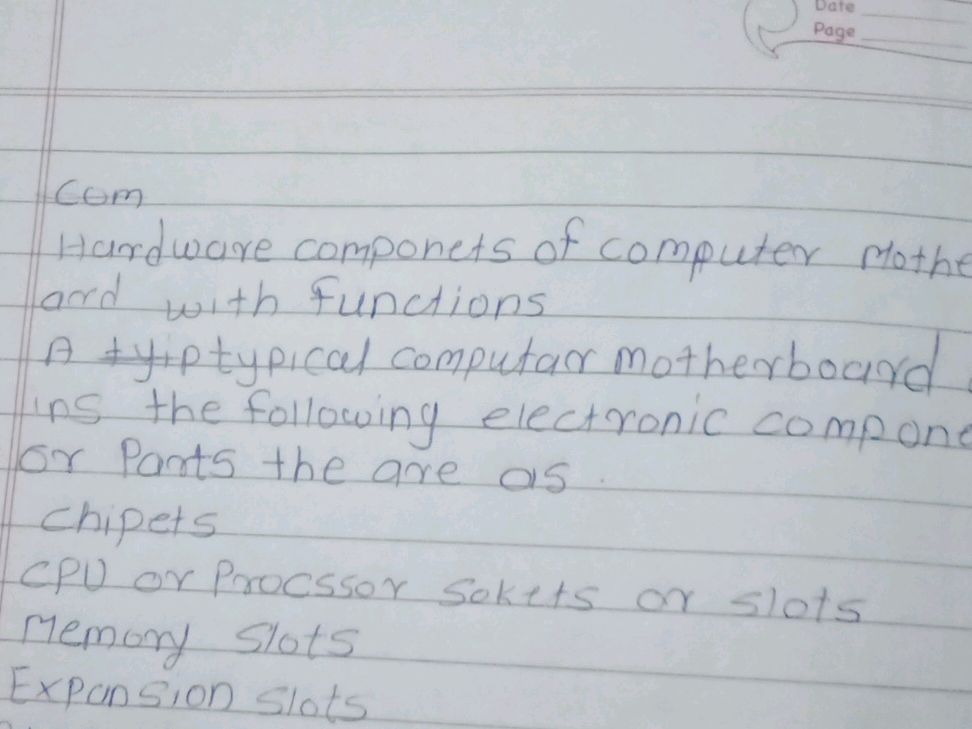 Date
Page
Com
Hardware componets of computer Mothe
ard with functions
A typical computar motherboard
ins the following electronic compone
or Parts the are as
Chipets
CPU or Procssor Sokets or slots
Memory Slots
Expansion Slots